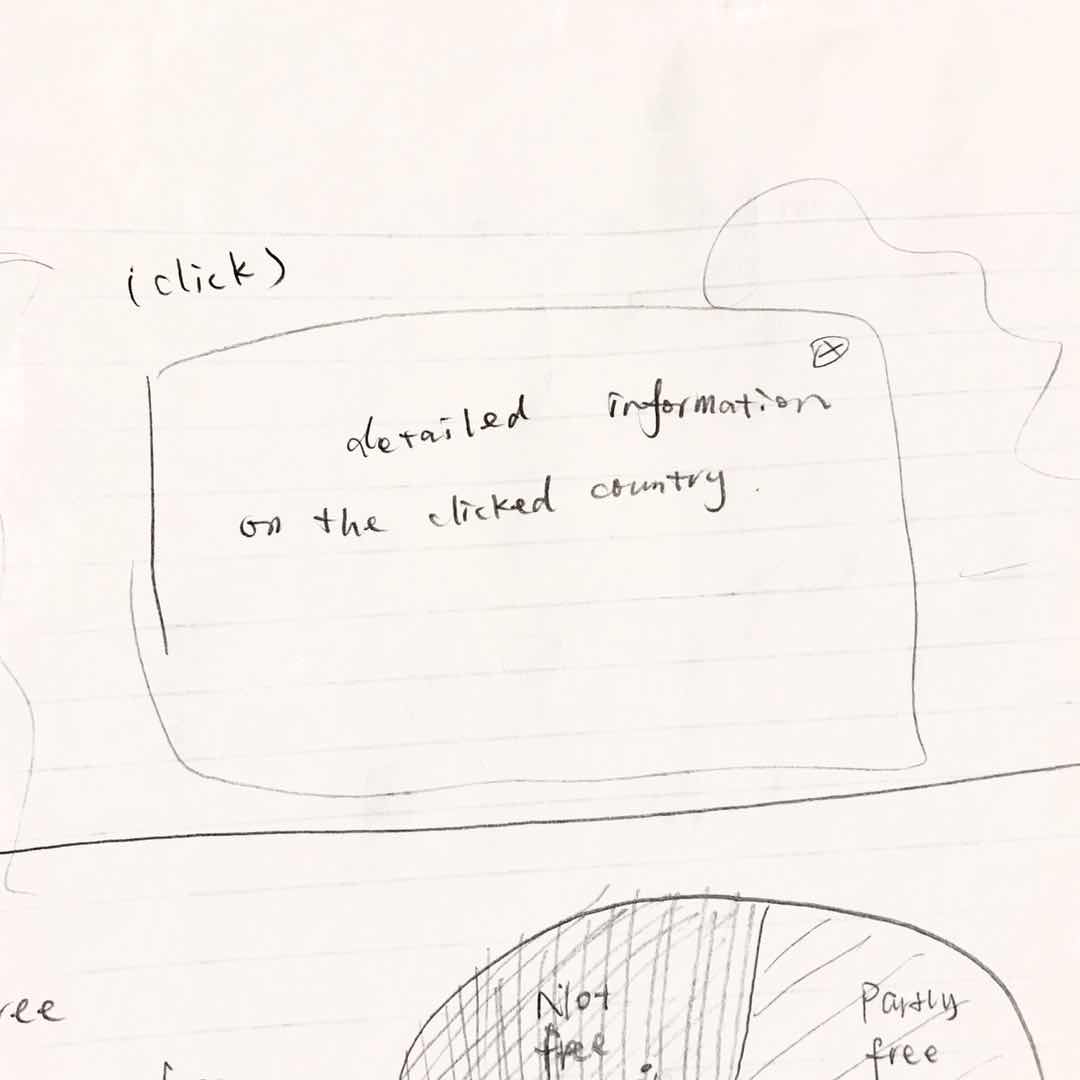 (click)
detailed information
on the clicked country.
Not
free
Partly
free